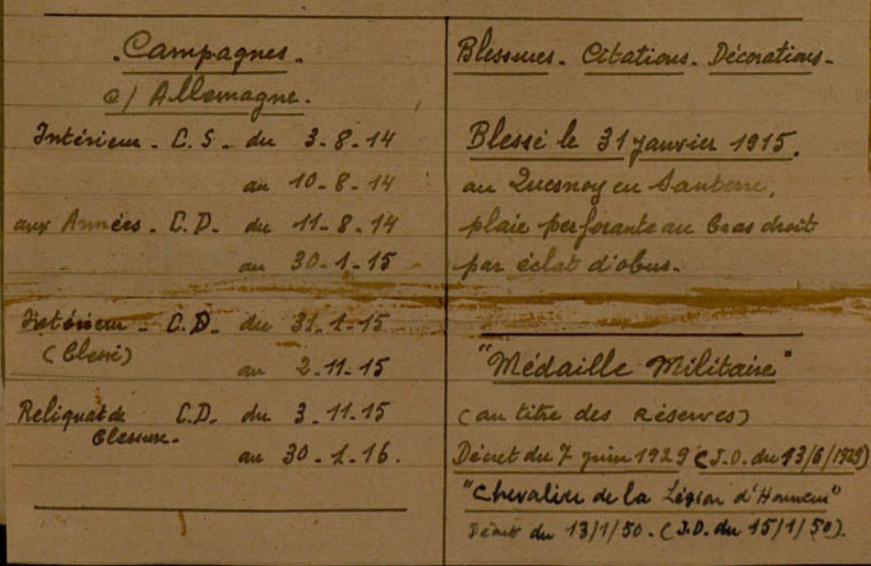 Campagnes.
c/ Allemagne.
Intérieur - C.S. - du 3-8-14
au 10-8-14
aux Armées - C.D. - du 11-8-14
au 30-1-15
Intérieur - C.D. - du 31-1-15
(blessé)
au 2-11-15
Reliquat de C.D. du 3.11.15
blessure.
au 30-1-16.
Blessures - Citations - Décorations -
Blessé le 31 janvier 1915.
au Quesnoy en Santerre,
plaie perforante au bras droit
par éclat d'obus.
"Médaille Militaire"
(au titre des Réserves)
Décret du 7 juin 1929 (J.O. du 13/6/1929)
"Chevalier de la Légion d'Honneur"
Décret du 13/1/50 - (J.O. du 15/1/50).